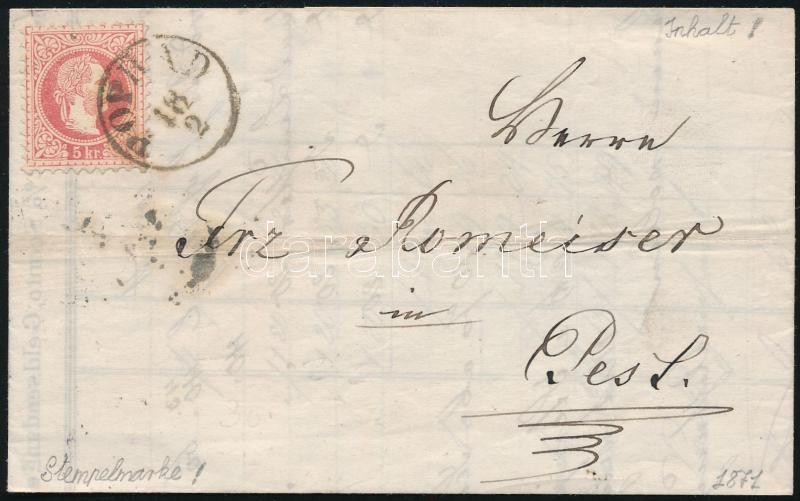 Inhalt!
POPRAD
18
2
5 kr.
Herrn
Frz Romeiser
in
Pest.
darabanth
Stempelmarke!
1871